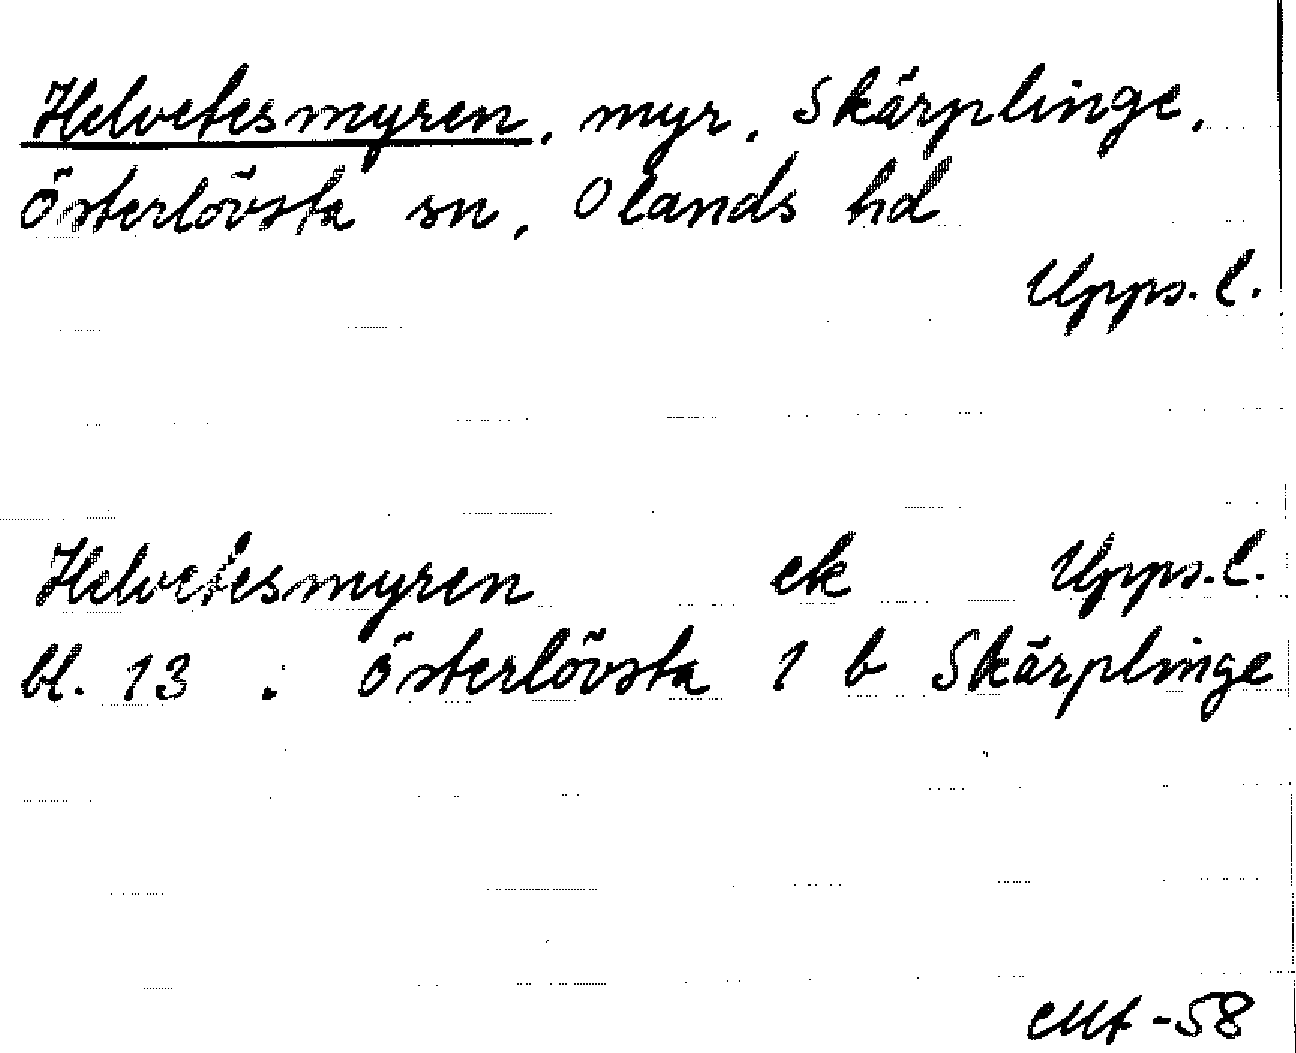 Helvetesmyren, myr, Skärplinge,
Österlövsta sn, Olands hd
Upps. l.
Helvetesmyren ek Upps. l.
bl. 13 : Österlövsta 1 b Skärplinge
-58